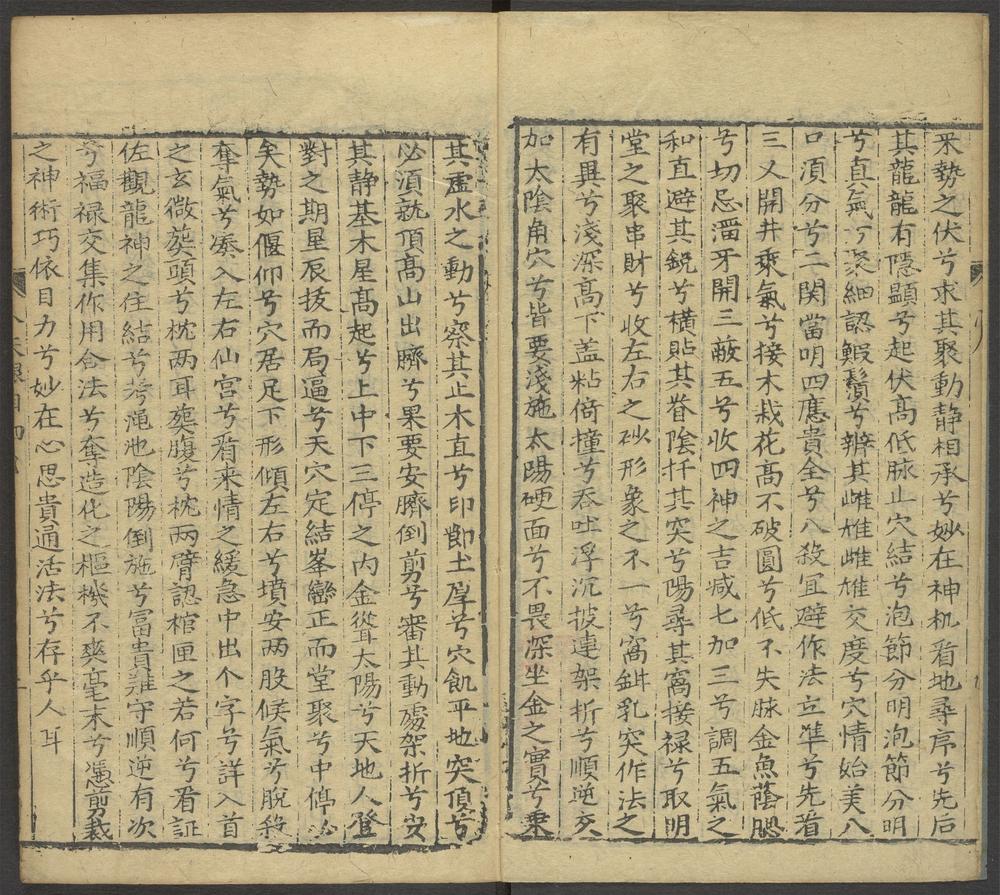 来勢之伏兮求其聚動静相承兮妙在神机看地尋序兮先后
其龍龍有隱顯兮起伏高低脉止穴結兮泡節分明泡節分明
兮直氣可聚細認鰕鬚兮辨其雌雄雌雄交度兮穴情始美八
口須分兮二関當明四應貴全兮八殺宜避作法立準兮先看
三义開井乘氣兮接木栽花高不破圓兮低不失脉金魚蔭腮
兮切忌溜牙開三蔽五兮收四神之吉减七加三兮調五氣之
和直避其鋭兮橫貼其脊陰扦其突兮陽尋其窩接禄兮取明
堂之聚串財兮收左右之砂形象之不一兮窩鉗乳突作法之
有異兮淺深高下盖粘倚撞兮吞吐浮沉披連架折兮順逆交
加太陰角穴兮皆要淺施太陽硬面兮不畏深坐金之實兮乗
其虛水之動兮察其止木直兮印節土厚兮穴飢平地突頂兮
必須就頂高山出臍兮果要安臍倒剪兮審其動處架折兮安
其静基木星高起兮上中下三停之内金聳太陽兮天地人登
對之期星辰拔而局逼兮天穴定結峯巒正而堂聚兮中停必
矣勢如偃仰兮穴居足下形傾左右兮墳安两股候氣兮脱殺
奪氣兮湊入左右仙宫兮看来情之緩急中出个字兮詳入首
之玄微葬頭兮枕两耳葬腹兮枕两臂認棺匣之若何兮看証
佐觀龍神之住結兮考渑池陰陽倒施兮富貴難守順逆有次
兮福禄交集作用合法兮奪造化之樞機不爽毫末兮憑剪裁
之神術巧依目力兮妙在心思貴通活法兮存乎人耳